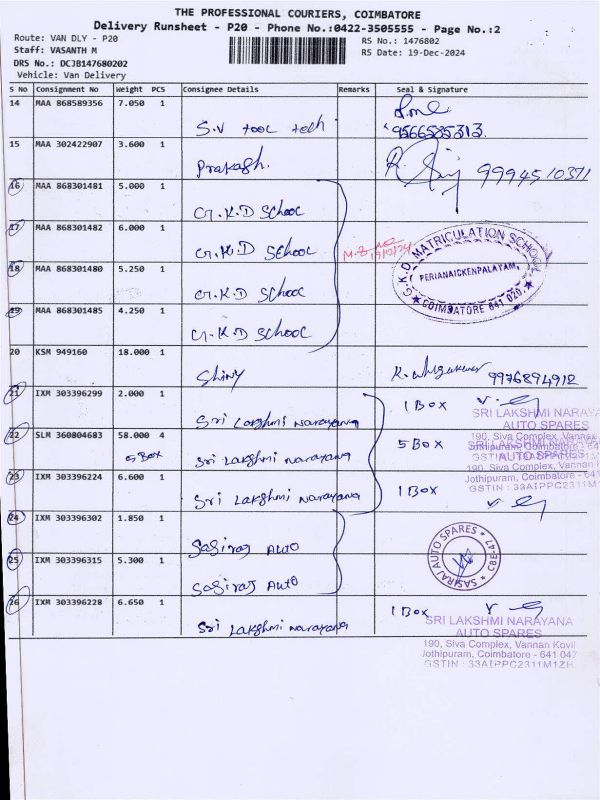 THE PROFESSIONAL COURIERS, COIMBATORE
Delivery Runsheet - P20 - Phone No.:0422-3505555 - Page No.:2
Route: VAN DLY - P20
RS No.: 1476802
Staff: VASANTH M
RS Date: 19-Dec-2024
DRS No.: DCJB147680202
Vehicle: Van Delivery
S No Consignment No Weight PCS Consignee Details Remarks Seal & Signature
14 MAA 868589356 7.050 1
S.V tool tech 9566585313
15 MAA 302422907 3.600 1
Prakash. 9994510371
16 MAA 868301481 5.000 1
G.K.D School
17 MAA 868301482 6.000 1
G.K.D School
G.K.D MATRICULATION SCHOOL
PERIANAICKENPALAYAM,
COIMBATORE 641 020.
18 MAA 868301480 5.250 1
G.K.D School
19 MAA 868301485 4.250 1
G.K.D School
20 KSM 949160 18.000 1
Shiny 9976894912
21 IXM 303396299 2.000 1 1 Box
Sri Lakshmi Narayana
SRI LAKSHMI NARAYA
AUTO SPARES
190, Siva Complex, Vannan
22 SLM 360804683 58.000 4 5 Box
5 Box Sri Lakshmi Narayana
AUTO SPARES
190, Siva Complex, Vannan
Jothipuram, Coimbatore - 641
GSTIN : 33AIPPC2311M1
23 IXM 303396224 6.600 1 1 Box
Sri Lakshmi Narayana
24 IXM 303396302 1.850 1
Sasiraj Auto
SASIRAJ AUTO SPARES
CBE-47
25 IXM 303396315 5.300 1
Sasiraj Auto
26 IXM 303396228 6.650 1 1 Box
Sri Lakshmi Narayana
SRI LAKSHMI NARAYANA
AUTO SPARES
190, Siva Complex, Vannan Kovil
Jothipuram, Coimbatore - 641 047
GSTIN : 33AIPPC2311M1ZH